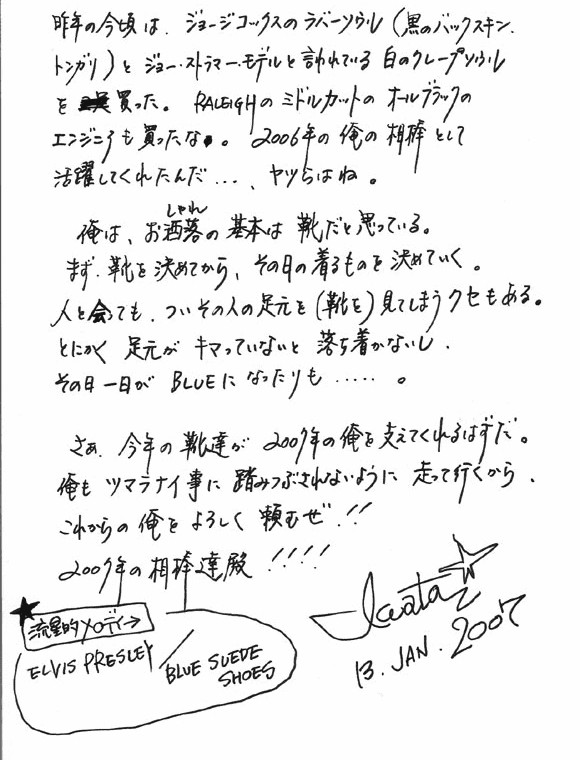 昨年の今頃は、ジョージコックスのラバーソウル(黒のバックスキン、
トンガリ)とジョー・ストラマー・モデルと言われている白のクレープソウル
を買った。RALEIGHのミドルカットのオールブラックの
エンジニアも買ったな。2006年の俺の相棒として
活躍してくれたんだ…、ヤツらはね。
しゃれ
俺は、お洒落の基本は靴だと思っている。
まず、靴を決めてから、その日の着るものを決めていく。
人と会っても、ついその人の足元を(靴を)見てしまうクセもある。
とにかく足元がキマっていないと落ち着かないし、
その日一日がBLUEになったりも……。
さぁ、今年の靴達が2007年の俺を支えてくれるはずだ。
俺もツマラナイ事に踏みつぶされないように走って行くから、
これからの俺をよろしく頼むぜ!!
2007年の相棒達殿!!!!
流星的メロディー→
ELVIS PRESLEY / BLUE SUEDE SHOES
Iwata
13. JAN. 2007